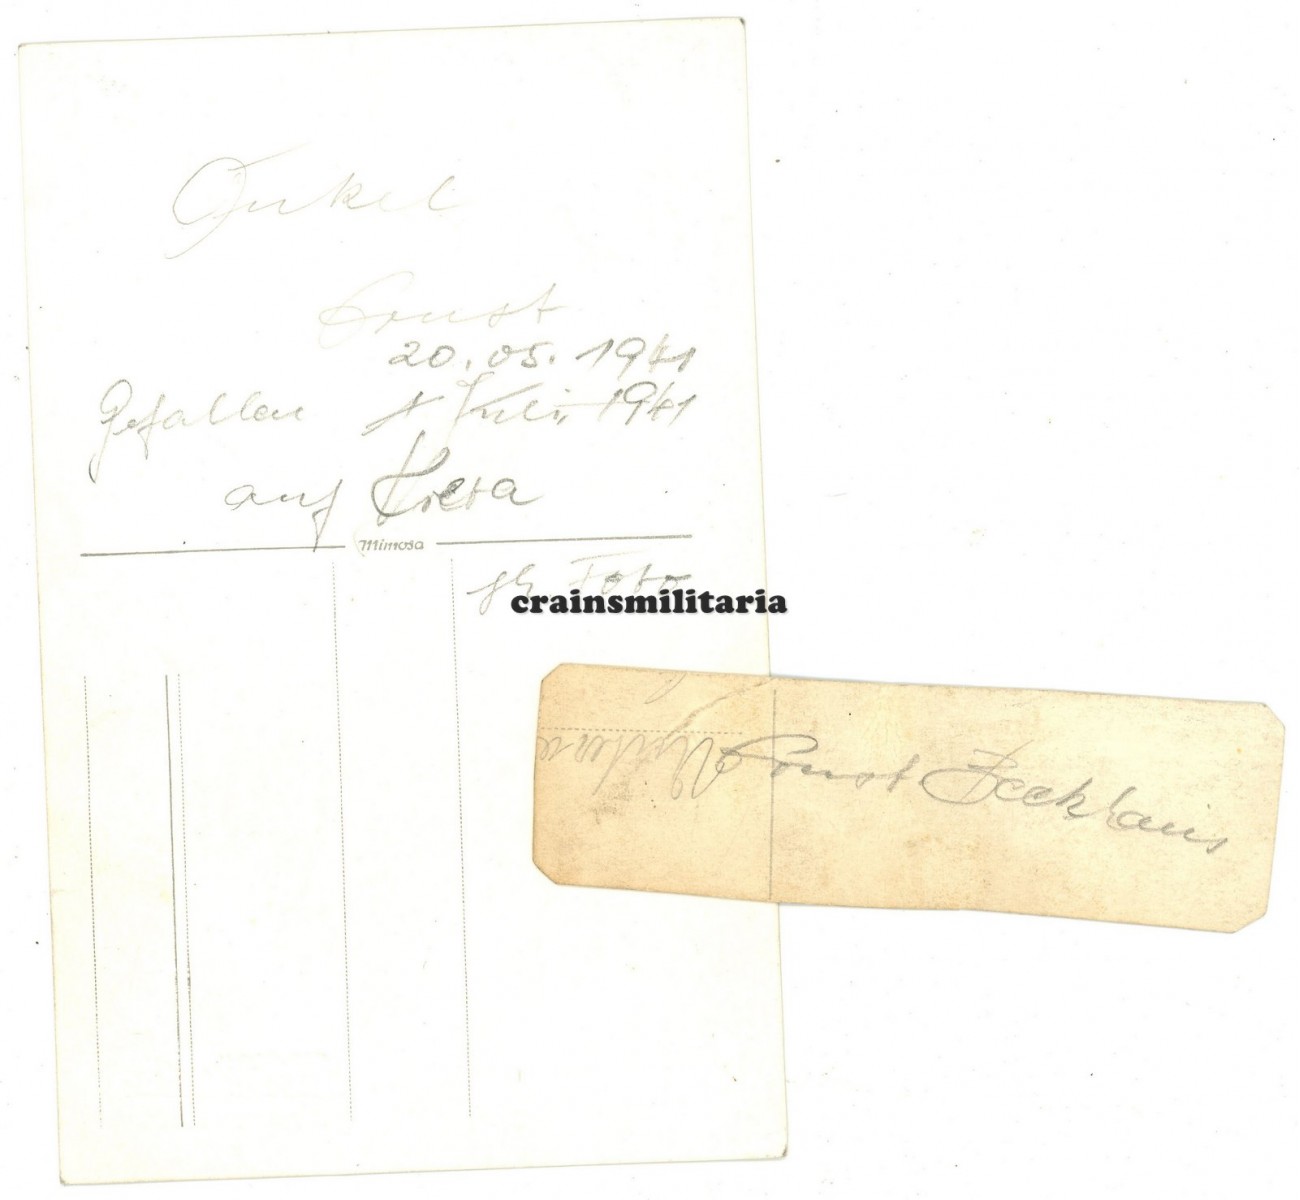 Onkel
Ernst
20.05.1941
Gefallen Juli 1941
auf Kreta
Mimosa
Foto
crainsmilitaria
Ernst